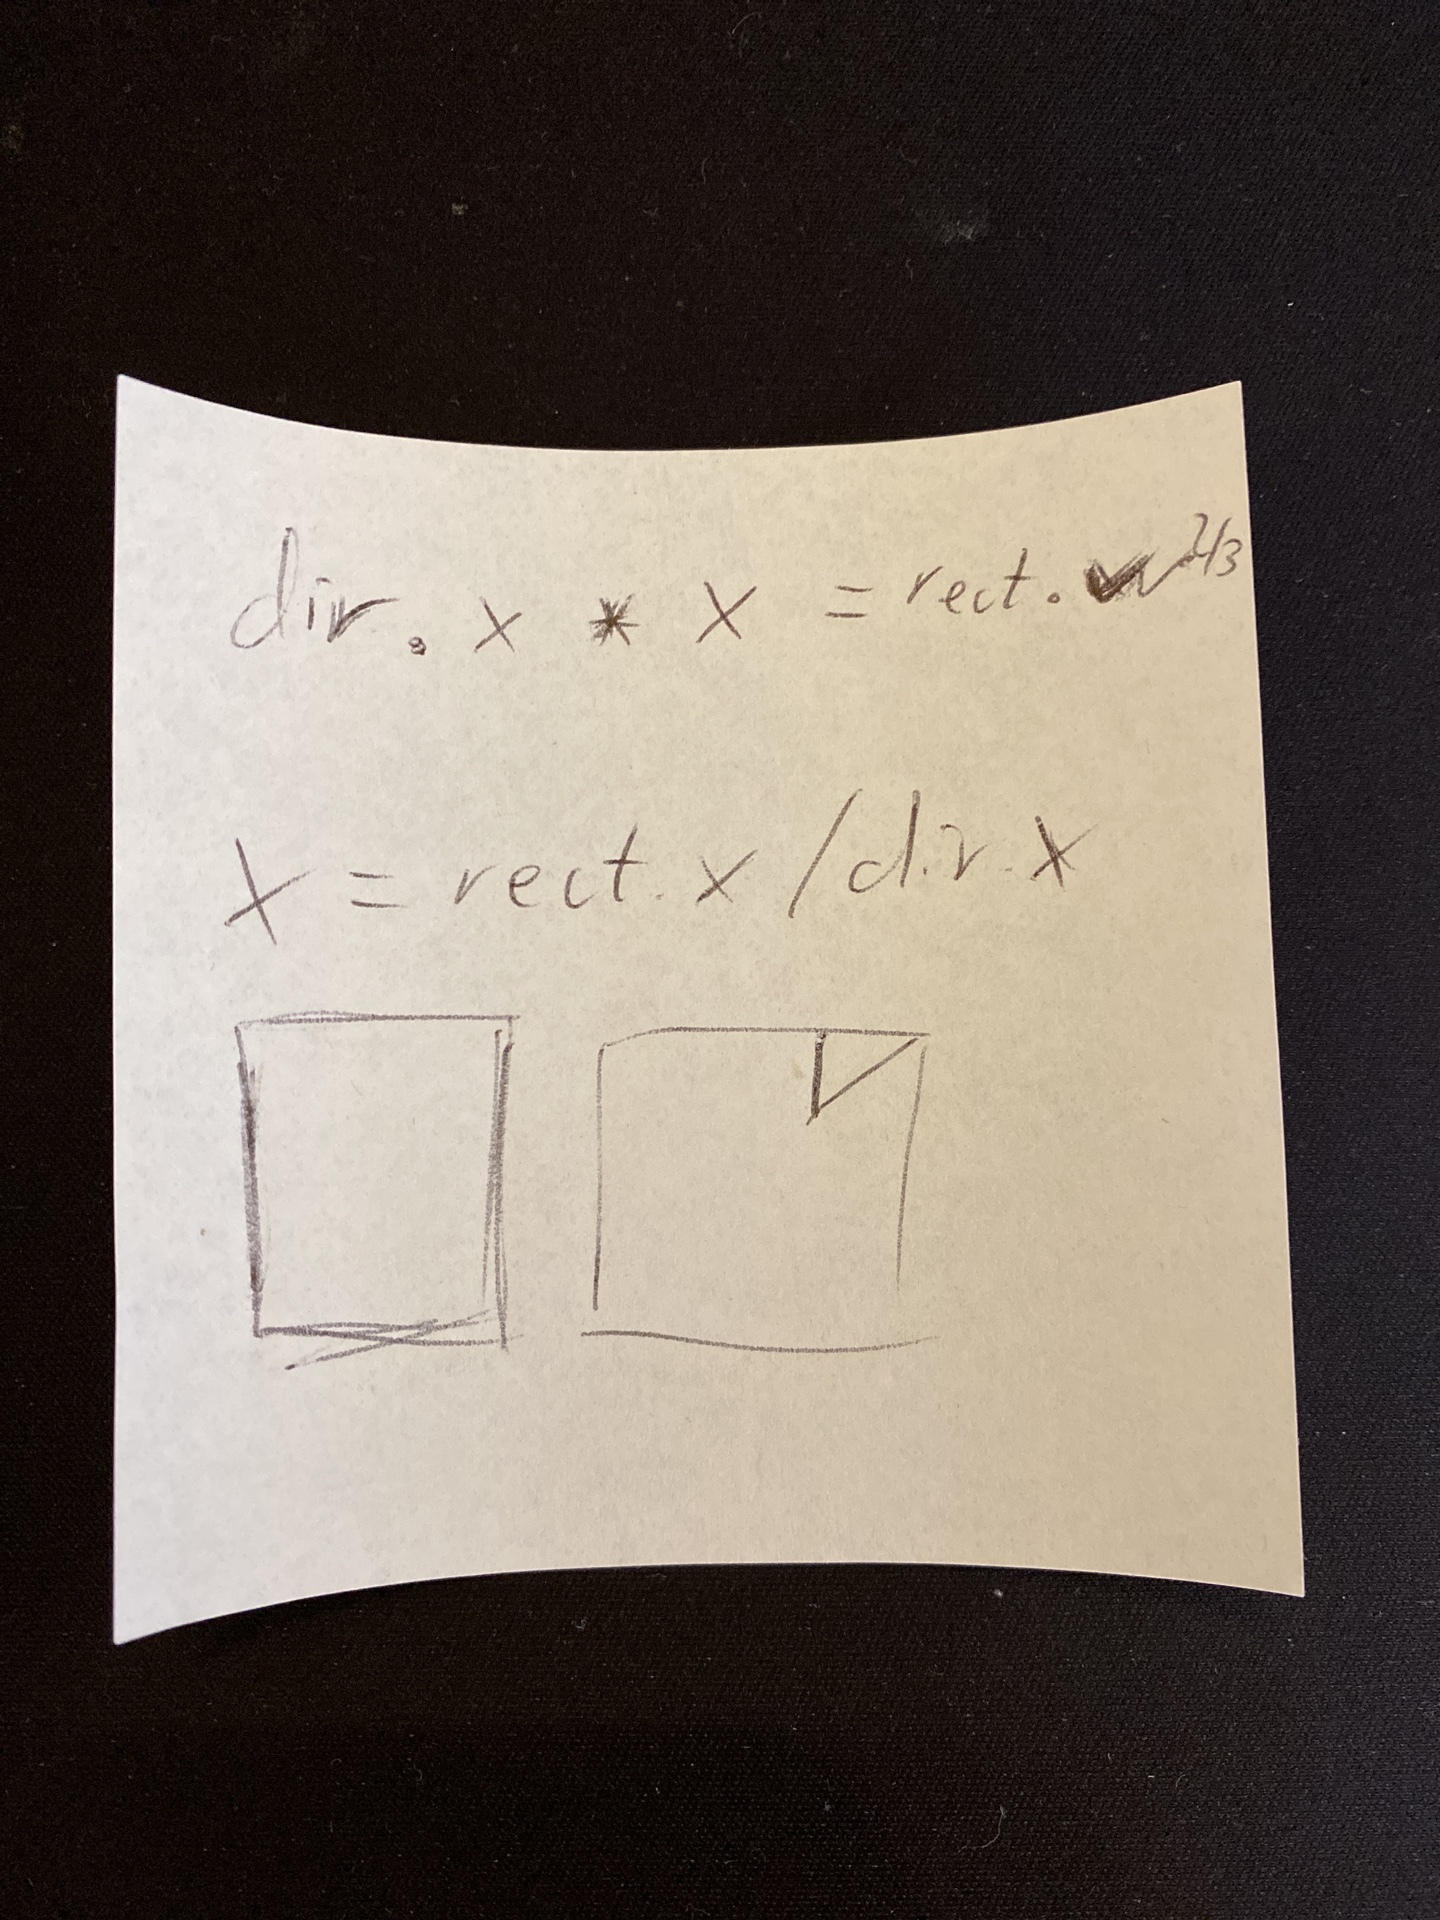 dir.x * x = rect.w
x = rect.x / dir.x